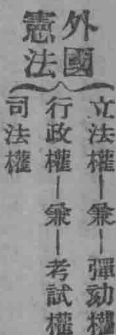 外國
憲法
立法權—兼—彈劾權
行政權—兼—考試權
司法權